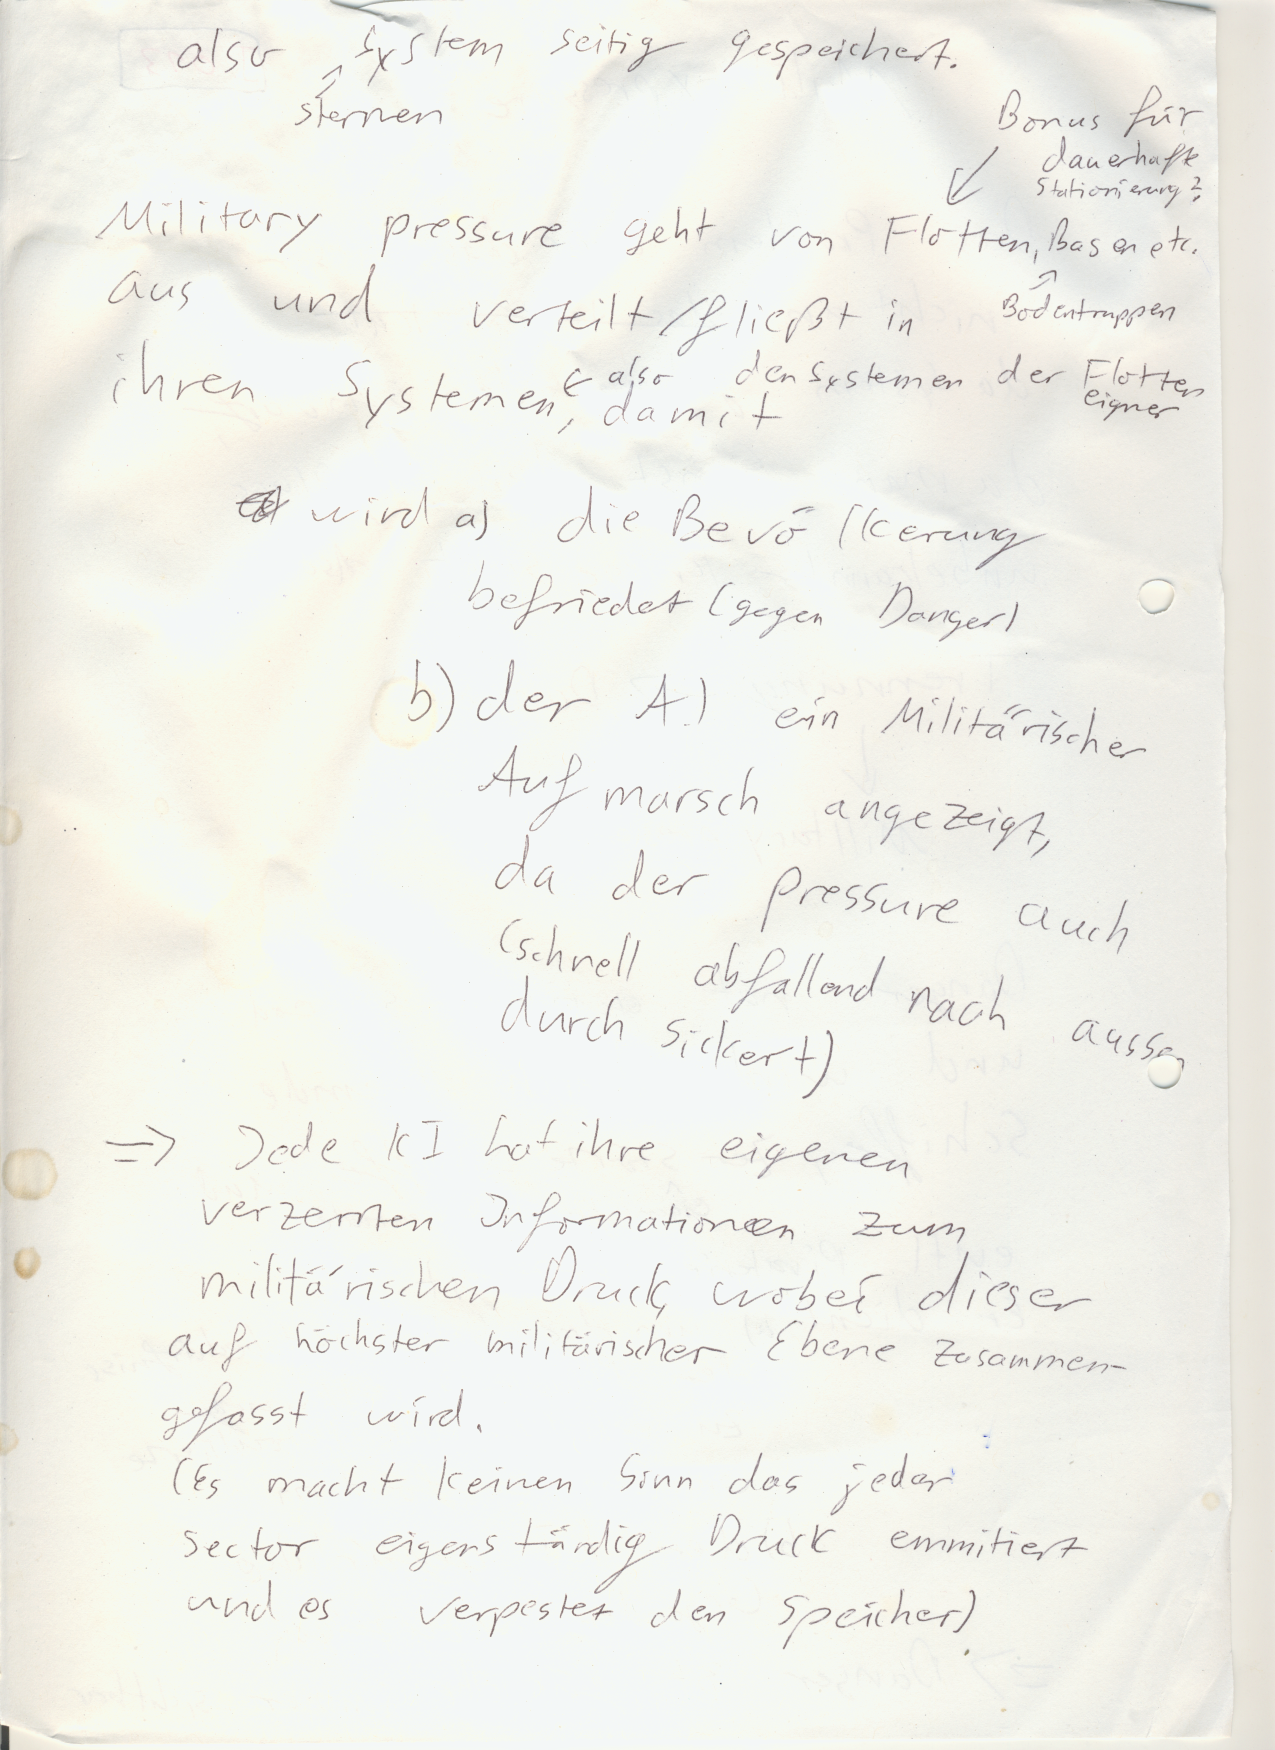 also System seitig gespeichert.
sternen
Bonus für
dauerhafte
Stationierung?
Military pressure geht von Flotten, Basen etc.
Bodentruppen
aus und verteilt/fließt in
ihren Systemen, damit
also den Systemen der Flotten
eigner
wird a) die Bevölkerung
befriedet (gegen Danger)
b) der A.I ein Militärischer
Aufmarsch angezeigt,
da der pressure auch
(schnell abfallend nach aussen
durch sickert)
=> Jede KI hat ihre eigenen
verzerrten Informationen zum
militärischen Druck, wobei dieser
auf höchster militärischer Ebene zusammen-
gefasst wird.
(Es macht keinen Sinn das jeder
sector eigenständig Druck emmitiert
und es verpestet den Speicher)